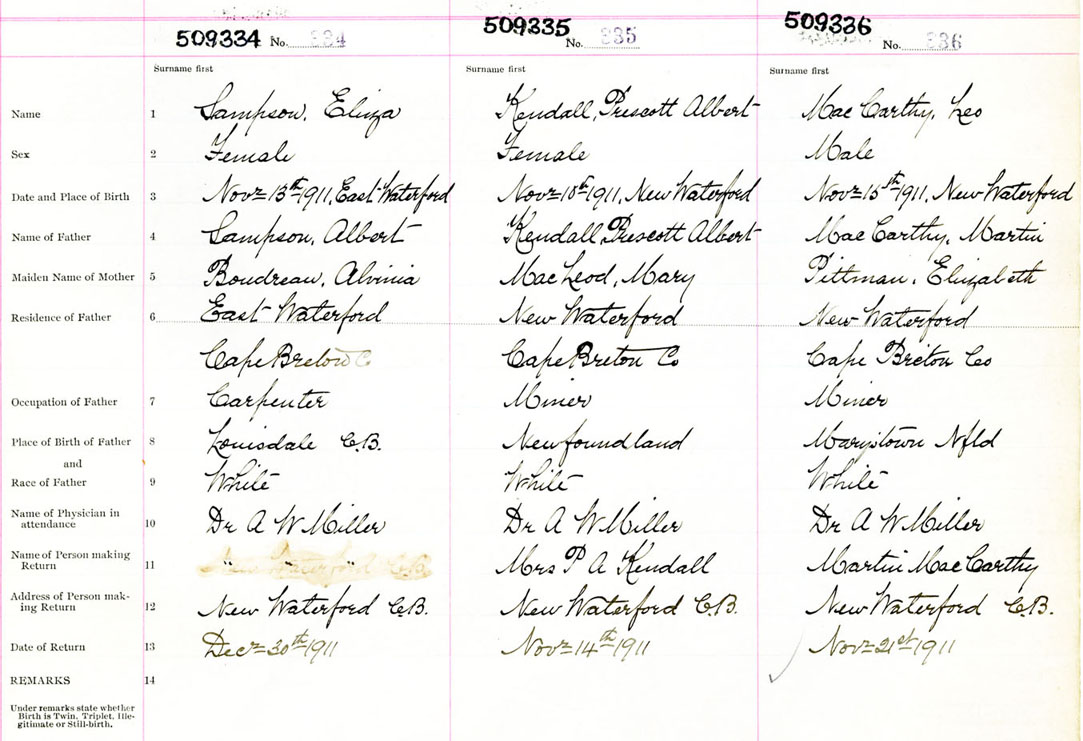 509334 No. 334 509335 No. 335 509336 No. 336
Surname first Surname first Surname first
Name 1 Sampson, Eliza Kendall, Prescott Albert Mac Carthy, Leo
Sex 2 Female Female Male
Date and Place of Birth 3 Nov= 13th 1911, East Waterford Nov= 10th 1911, New Waterford Nov= 15th 1911, New Waterford
Name of Father 4 Sampson, Albert Kendall, Prescott Albert Mac Carthy, Martin
Maiden Name of Mother 5 Boudreau, Alvinia Mac Leod, Mary Pittman, Elizabeth
Residence of Father 6 East Waterford New Waterford New Waterford
Cape Breton Co Cape Breton Co Cape Breton Co
Occupation of Father 7 Carpenter Miner Miner
Place of Birth of Father 8 Louisdale C.B. Newfoundland Marystown Nfld
and
Race of Father 9 White White White
Name of Physician in
attendance 10 Dr A W Miller Dr A W Miller Dr A W Miller
Name of Person making
Return 11 " " " Mrs P A Kendall Martin Mac Carthy
Address of Person mak-
ing Return 12 New Waterford C.B. New Waterford C.B. New Waterford C.B.
Date of Return 13 Decr= 30th 1911 Nov= 14th 1911 Nov= 21st 1911
REMARKS 14
Under remarks state whether
Birth is Twin, Triplet, Ille-
gitimate or Still-birth.